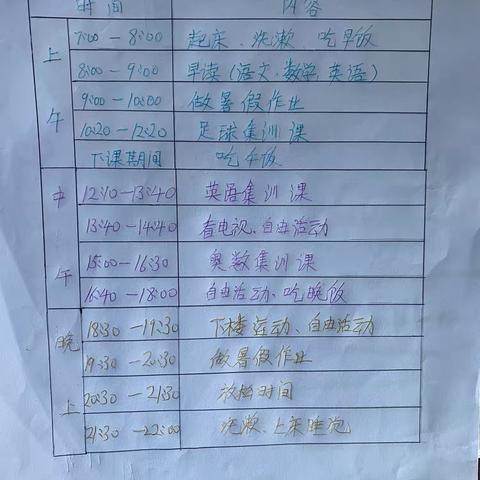 时间 内容
上午
7:00—8:00 起床、洗漱、吃早饭
8:00—9:00 早读（语文、数学、英语）
9:00—10:00 做暑假作业
10:20—12:20 足球集训课
下课期间 吃午饭
中午
12:10—13:40 英语集训课
13:40—14:40 看电视、自由活动
15:00—16:30 奥数集训课
16:40—18:00 自由活动、吃晚饭
晚上
18:30—19:30 下楼运动、自由活动
19:30—20:30 做暑假作业
20:30—21:30 放松时间
21:30—22:00 洗漱、上床睡觉